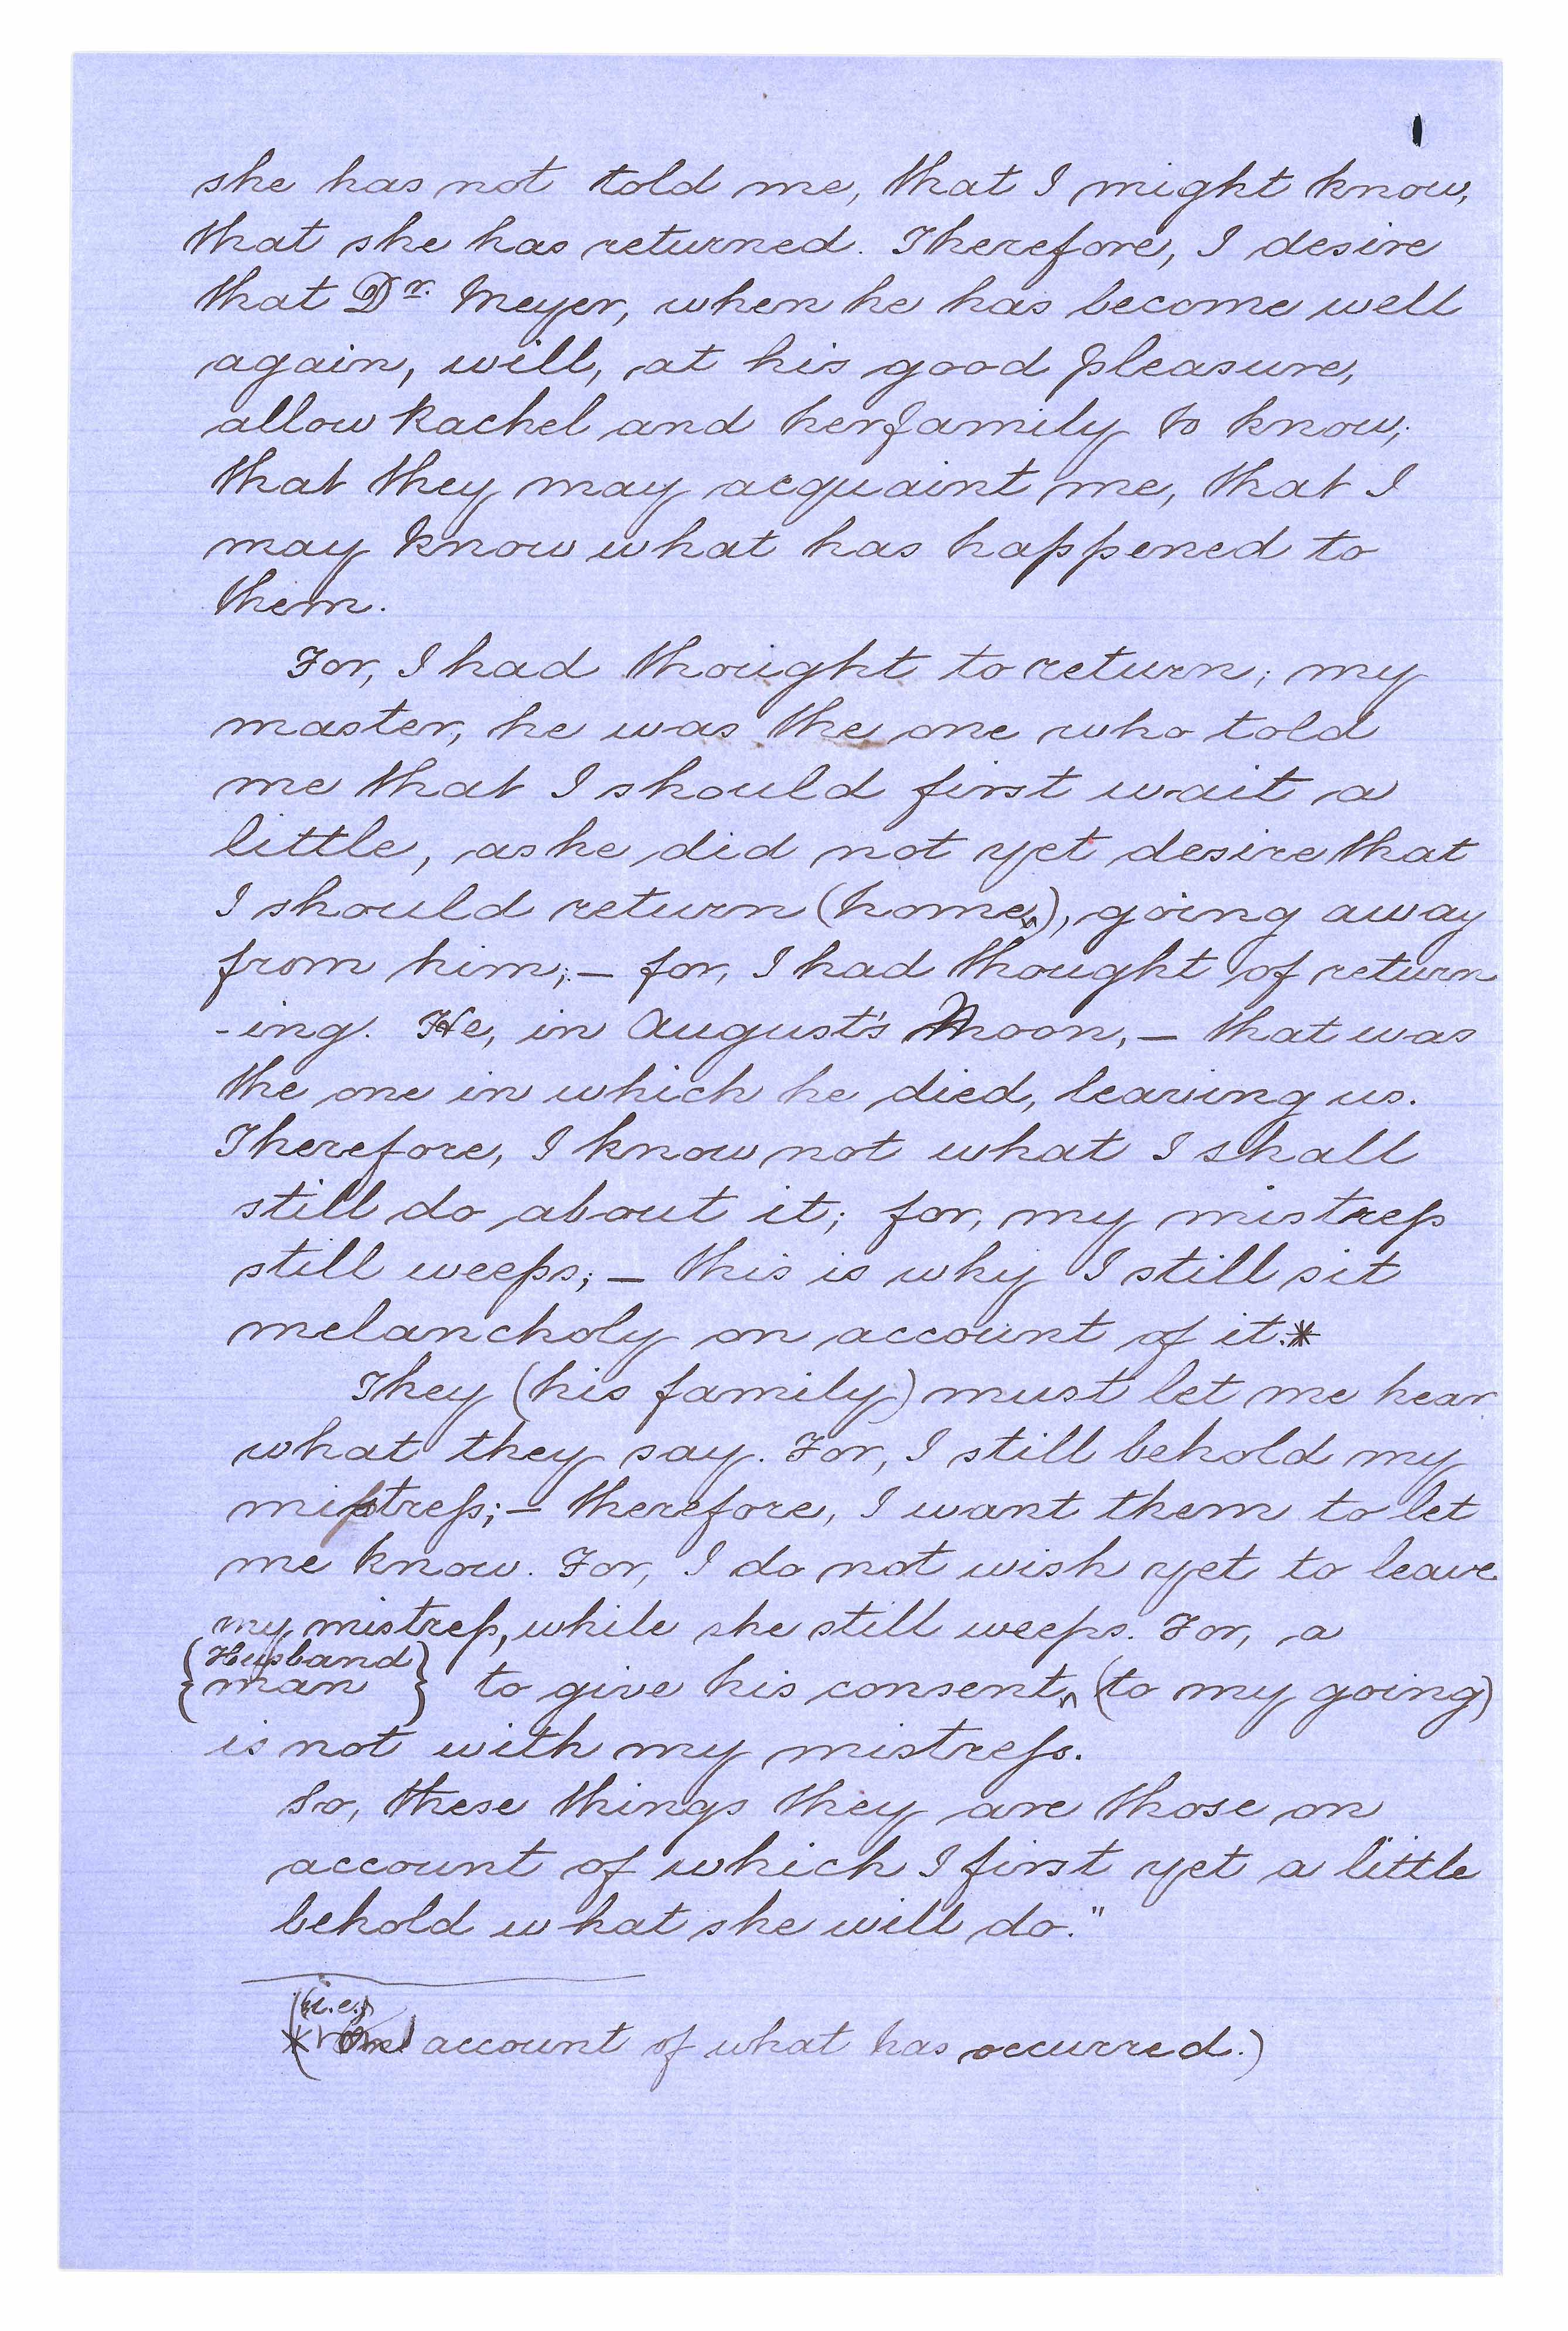 she has not told me, that I might know,
that she has returned. Therefore, I desire
that Dr. Meyer, when he has become well
again, will, at his good pleasure,
allow Rachel and her family to know,
that they may acquaint me, that I
may know what has happened to
them.
For, I had thought to return; my
master, he was the one who told
me that I should first wait a
little, as he did not yet desire that
I should return (home), going away
from him; — for, I had thought of return
-ing. He, in August's Moon, — that was
the one in which he died, leaving us.
Therefore, I know not what I shall
still do about it; for, my mistress
still weeps; — this is why I still sit
melancholy on account of it.*
They (his family) must let me hear
what they say. For, I still behold my
mistress; — therefore, I want them to let
me know. For, I do not wish yet to leave
my mistress, while she still weeps. For, a
{Husband
man} to give his consent (to my going)
is not with my mistress.
So, these things they are those on
account of which I first yet a little
behold what she will do."
(i.e.,
* on account of what has occurred.)